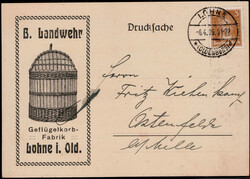 B. Landwehr
Geflügelkorb-
Fabrik
Lohne i. Old.
Drucksache
LOHNE
(OLDENBURG)
Herrn
Fritz
Ostenfelde